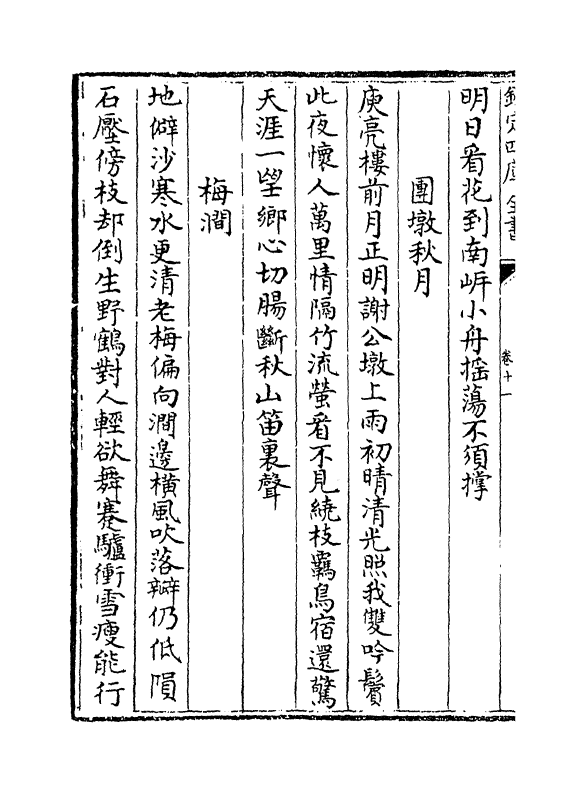 欽定四庫全書
卷十一
明日看花到南岍小舟揺蕩不須撑
團墩秋月
庾亮樓前月正明謝公墩上雨初晴清光照我雙吟鬢
此夜懷人萬里情隔竹流螢看不見繞枝羈鳥宿還驚
天涯一望鄉心切腸斷秋山笛裏聲
梅澗
地僻沙寒水更清老梅偏向澗邊橫風吹落瓣仍低隕
石壓傍枝却倒生野鶴對人輕欲舞蹇驢衝雪瘦能行